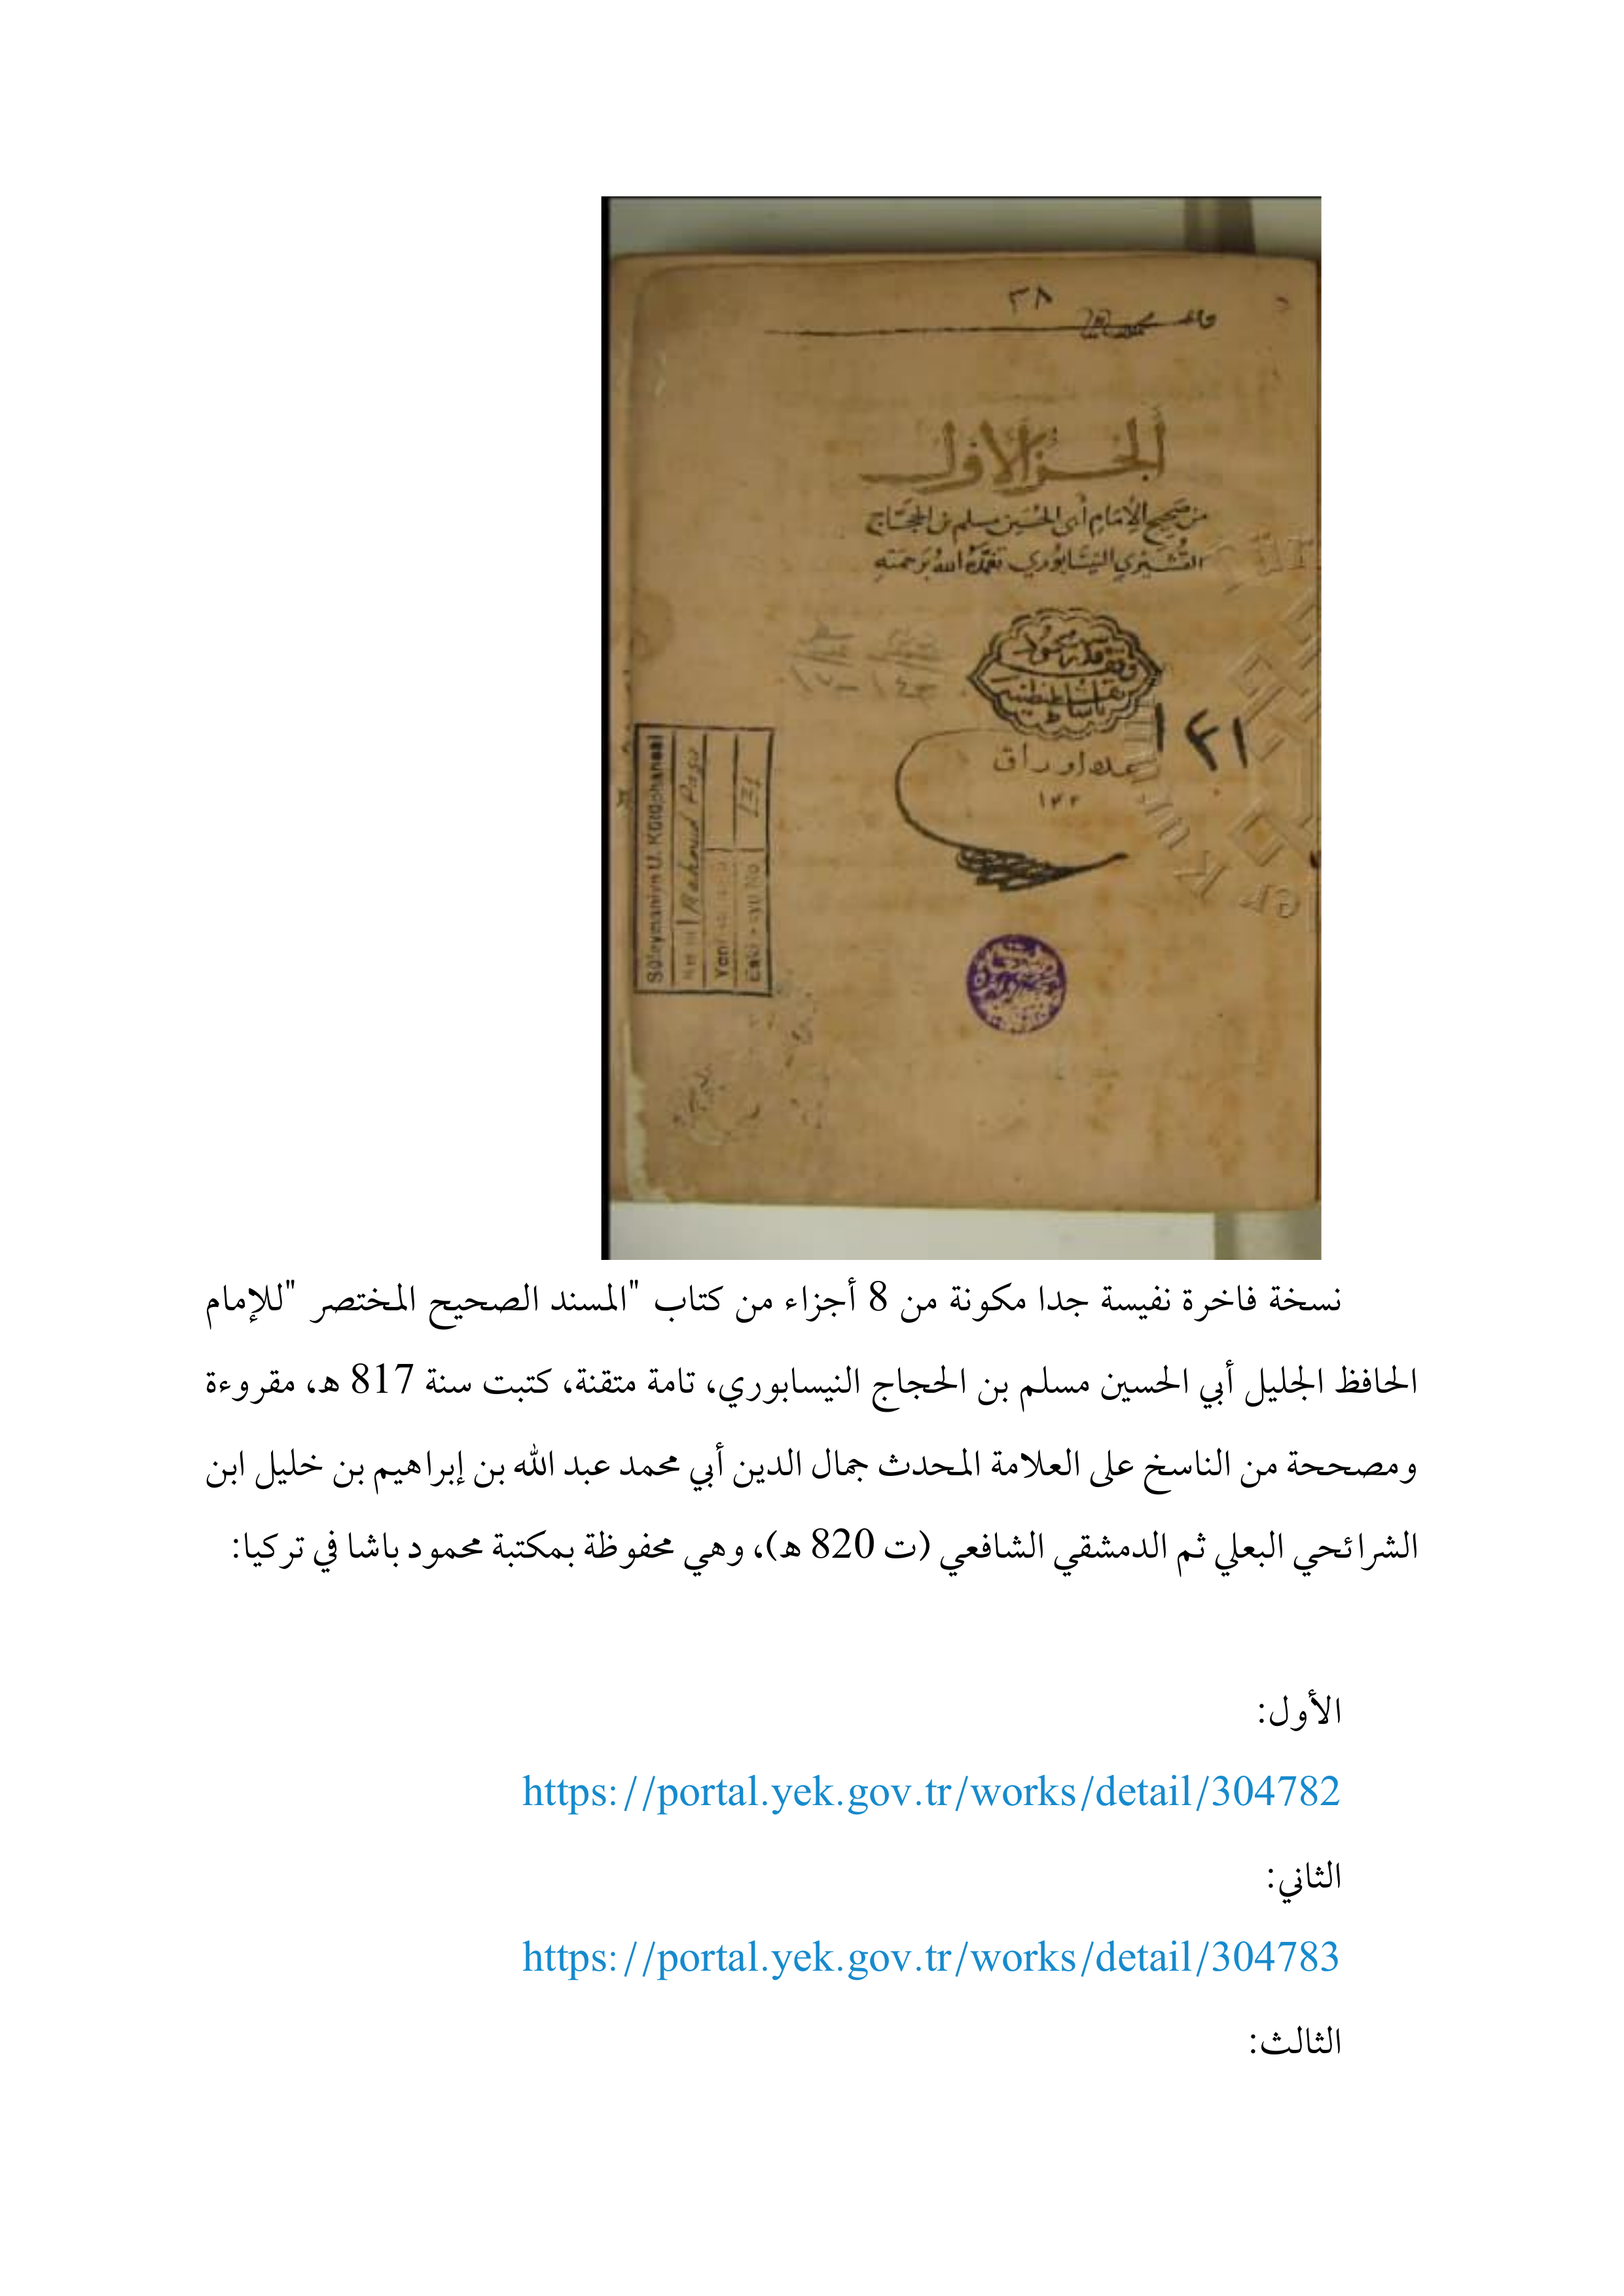 ٣٨
الجزء الأول
من صحيح الإمام أبي الحسين مسلم بن الحجاج
القشيري النيسابوري تغمده الله برحمته
وقف محمود
باشا
١٤١
عدد اوراق
١٤٢
Süleymaniye U. Kütüphanesi
Mahmud Paşa
Yeni
Eski Kayıt No
نسخة فاخرة نفيسة جدا مكونة من 8 أجزاء من كتاب "المسند الصحيح المختصر "للإمام
الحافظ الجليل أبي الحسين مسلم بن الحجاج النيسابوري، تامة متقنة، كتبت سنة 817 ه، مقروءة
ومصححة من الناسخ على العلامة المحدث جمال الدين أبي محمد عبد الله بن إبراهيم بن خليل ابن
الشرائحي البعلي ثم الدمشقي الشافعي (ت 820 ه)، وهي محفوظة بمكتبة محمود باشا في تركيا:
الأول:
https://portal.yek.gov.tr/works/detail/304782
الثاني:
https://portal.yek.gov.tr/works/detail/304783
الثالث: